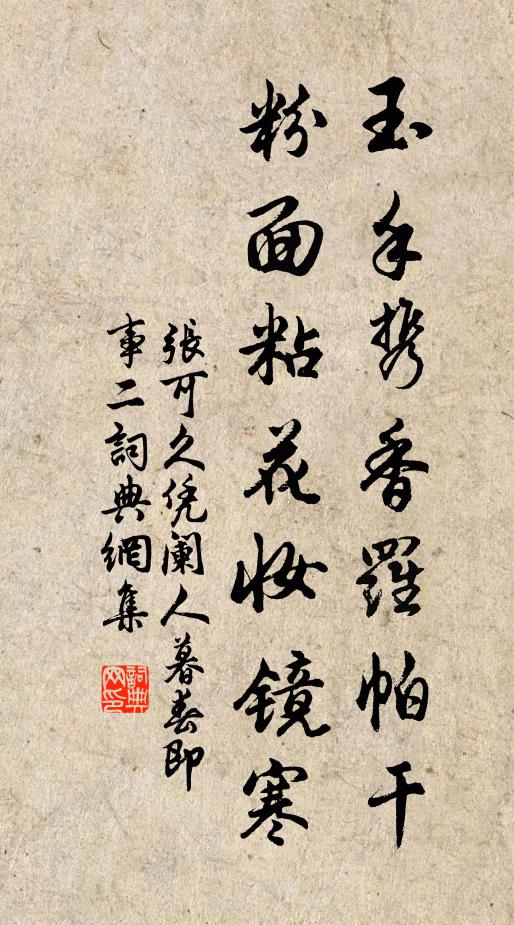 玉手携香羅帕干
粉面粘花妆镜寒
張可久凭阑人暮春即
事二詞典網集
詞典
网印